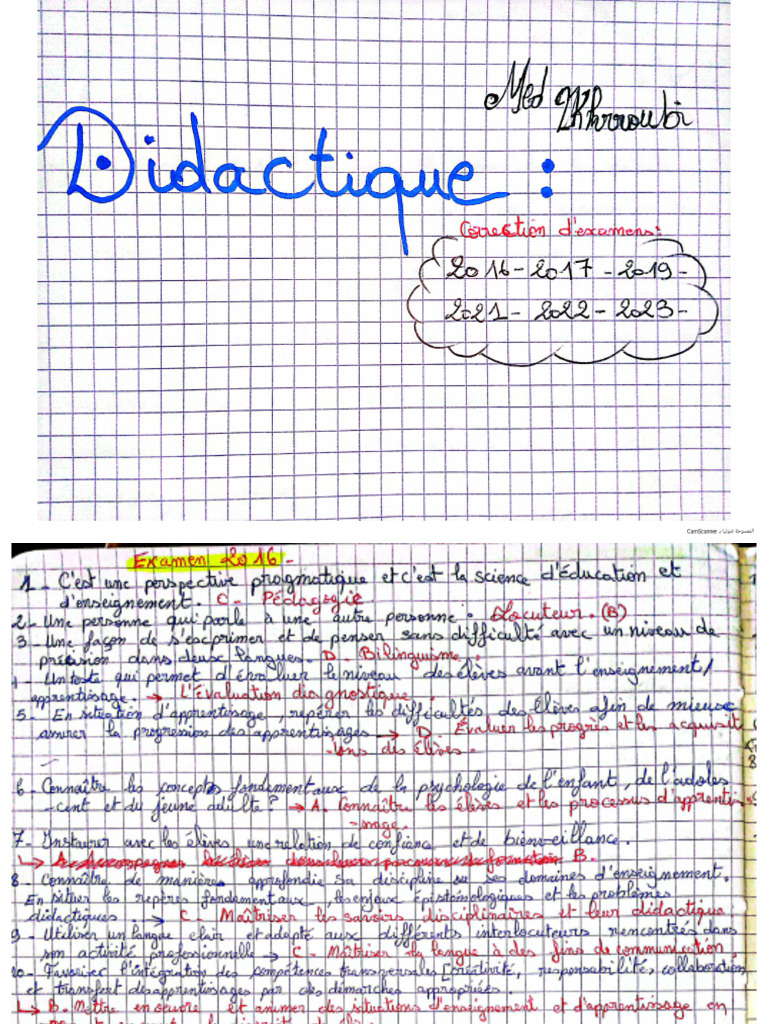 Med
Khrroubi
Didactique :
Correction d'examens:
2016-2017-2019-
2021-2022-2023-
CamScanner الممسوحة ضوئيا بـ
Examen 2016-
1- C'est une perspective progmatique et c'est la science d'éducation et
d'enseignement. C- Pédagogie
2- Une personne qui parle à une autre personne : Locuteur. (B)
3- Une façon de s'exprimer et de penser sans difficulté avec un niveau de
précision dans deux langues. D. Bilinguisme
Un teste qui permet d'évaluer le niveau des élèves avant l'enseignement/
apprentissage. → L'Evaluation diagnostique
5- En situation d'apprentissage, repérer les difficultés des élèves afin de mieux
assurer la progression des apprentissages → D. Évaluer les progrès et les acquisit
-ions des élèves.
6- Connaître les concepts fondamentaux de la psychologie de l'enfant, de l'adoles
-cent et du jeune adulte? → A. Connaître les élèves et les processus d'apprentis
-sage.
7- Instaurer avec les élèves une relation de confiance et de bienveillance.
↳ B.
8- Connaître de manière approfondie sa discipline ou ses domaines d'enseignement.
En situer les repères fondamentaux, les enjeux épistémologiques et les problèmes
didactiques → C- Maîtriser les savoirs disciplinaires et leur didactique
9- Utiliser un langue clair et adapté aux différents interlocuteurs rencontrés dans
son activité professionnelle → C- Maîtriser la langue à des fins de communication
10- Favoriser l'intégration des compétences transversales (créativité, responsabilités, collaboration
et transfert des apprentissages par des démarches appropriées.
↳ B- Mettre en œuvre et animer des situations d'enseignement et d'apprentissage en